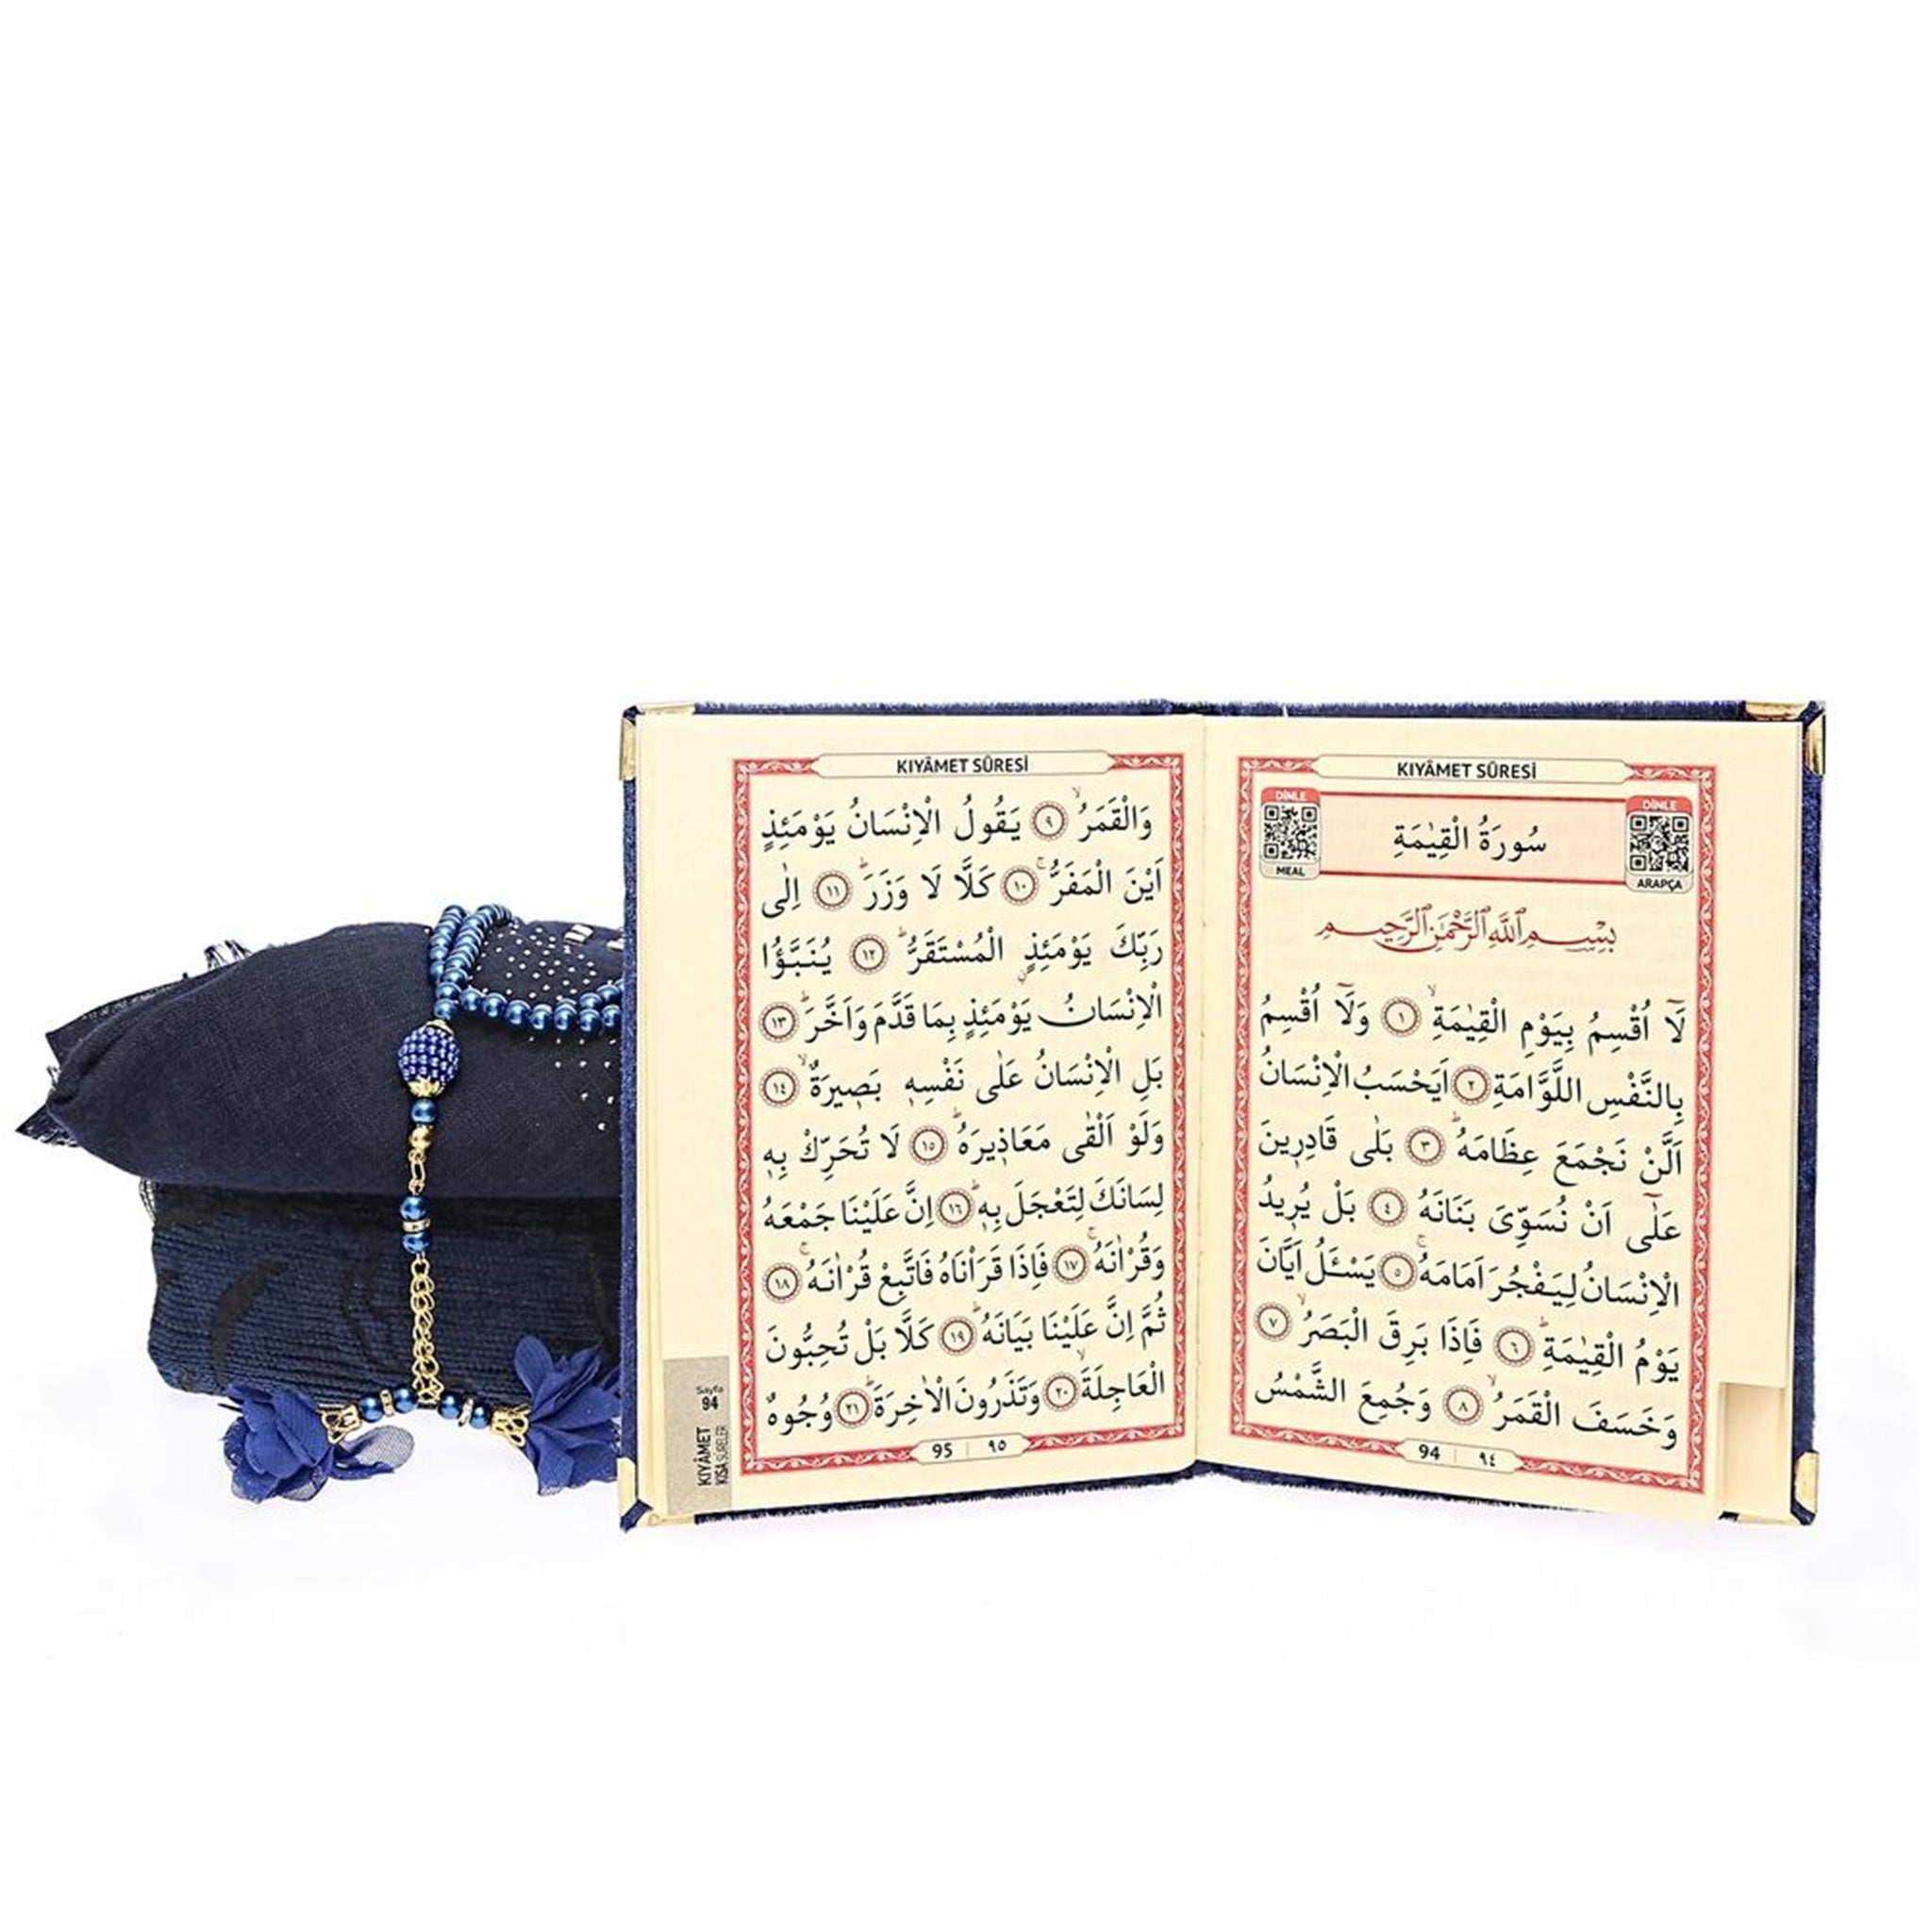 KIYÂMET SÛRESİ
DİNLE
MEAL
سُورَةُ الْقِيٰمَةِ
DİNLE
ARAPÇA
بِسْمِ اللّٰهِ الرَّحْمٰنِ الرَّحِيمِ
لَٓا اُقْسِمُ بِيَوْمِ الْقِيٰمَةِۙ ﴿١﴾ وَلَٓا اُقْسِمُ
بِالنَّفْسِ اللَّوَّامَةِ ﴿٢﴾ اَيَحْسَبُ الْاِنْسَانُ
اَلَّنْ نَجْمَعَ عِظَامَهُۜ ﴿٣﴾ بَلٰى قَادِر۪ينَ
عَلٰٓى اَنْ نُسَوِّيَ بَنَانَهُ ﴿٤﴾ بَلْ يُر۪يدُ
الْاِنْسَانُ لِيَفْجُرَ اَمَامَهُۚ ﴿٥﴾ يَسْـَٔلُ اَيَّانَ
يَوْمُ الْقِيٰمَةِۜ ﴿٦﴾ فَاِذَا بَرِقَ الْبَصَرُۙ ﴿٧﴾
وَخَسَفَ الْقَمَرُۙ ﴿٨﴾ وَجُمِعَ الشَّمْسُ
94 | ٩٤
KIYÂMET SÛRESİ
وَالْقَمَرُۙ ﴿٩﴾ يَقُولُ الْاِنْسَانُ يَوْمَئِذٍ
اَيْنَ الْمَفَرُّۚ ﴿١٠﴾ كَلَّا لَا وَزَرَۜ ﴿١١﴾ اِلٰى
رَبِّكَ يَوْمَئِذٍۨ الْمُسْتَقَرُّۜ ﴿١٢﴾ يُنَبَّؤُا
الْاِنْسَانُ يَوْمَئِذٍ بِمَا قَدَّمَ وَاَخَّرَۜ ﴿١٣﴾
بَلِ الْاِنْسَانُ عَلٰى نَفْسِه۪ بَص۪يرَةٌۙ ﴿١٤﴾
وَلَوْ اَلْقٰى مَعَاذ۪يرَهُۜ ﴿١٥﴾ لَا تُحَرِّكْ بِه۪
لِسَانَكَ لِتَعْجَلَ بِه۪ۜ ﴿١٦﴾ اِنَّ عَلَيْنَا جَمْعَهُ
وَقُرْاٰنَهُۚ ﴿١٧﴾ فَاِذَا قَرَاْنَاهُ فَاتَّبِعْ قُرْاٰنَهُۚ ﴿١٨﴾
ثُمَّ اِنَّ عَلَيْنَا بَيَانَهُۜ ﴿١٩﴾ كَلَّا بَلْ تُحِبُّونَ
الْعَاجِلَةَۙ ﴿٢٠﴾ وَتَذَرُونَ الْاٰخِرَةَۜ ﴿٢١﴾ وُجُوهٌ
95 | ٩٥
Sayfa
94
KIYÂMET
KISA SÛRELER